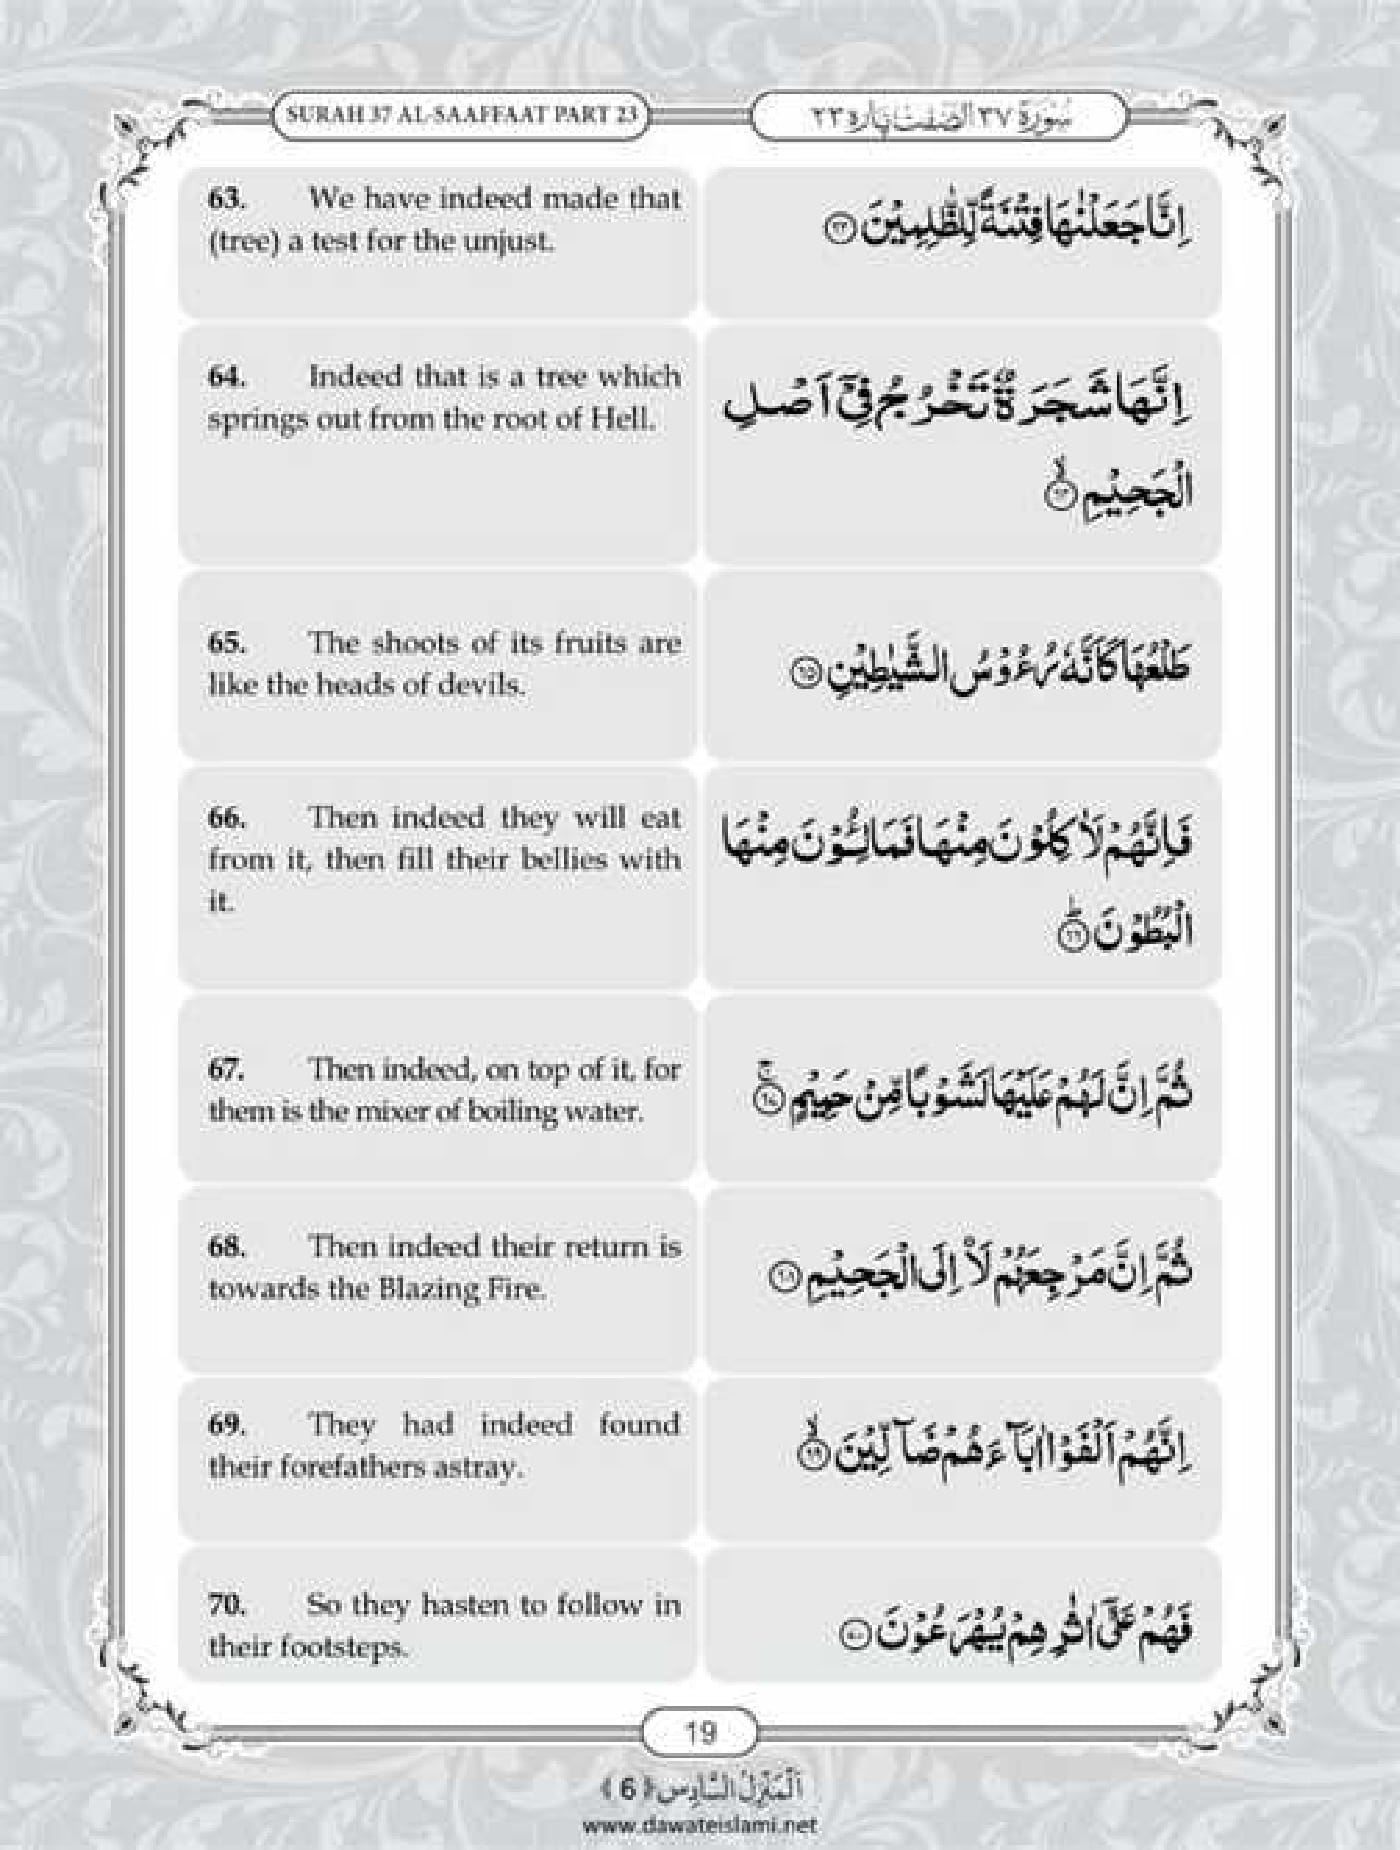 SURAH 37 AL-SAAFFAAT PART 23
سُوْرَة ٣٧ الصّٰفّٰت پارہ ٢٣
63. We have indeed made that
(tree) a test for the unjust.
اِنَّا جَعَلْنٰهَا فِتْنَةً لِّلظّٰلِمِیْنَ ﴿۶۳﴾
64. Indeed that is a tree which
springs out from the root of Hell.
اِنَّهَا شَجَرَةٌ تَخْرُجُ فِیْۤ اَصْلِ
الْجَحِیْمِ ﴿ۙ۶۴﴾
65. The shoots of its fruits are
like the heads of devils.
طَلْعُهَا كَاَنَّهٗ رُءُوْسُ الشَّیٰطِیْنِ ﴿۶۵﴾
66. Then indeed they will eat
from it, then fill their bellies with
it.
فَاِنَّهُمْ لَاٰكِلُوْنَ مِنْهَا فَمَالِـُٔوْنَ مِنْهَا
الْبُطُوْنَ ﴿ؕ۶۶﴾
67. Then indeed, on top of it, for
them is the mixer of boiling water.
ثُمَّ اِنَّ لَهُمْ عَلَیْهَا لَشَوْبًا مِّنْ حَمِیْمٍ ﴿ۚ۶۷﴾
68. Then indeed their return is
towards the Blazing Fire.
ثُمَّ اِنَّ مَرْجِعَهُمْ لَاۡ اِلَی الْجَحِیْمِ ﴿۶۸﴾
69. They had indeed found
their forefathers astray.
اِنَّهُمْ اَلْفَوْا اٰبَآءَهُمْ ضَآلِّیْنَ ﴿ۙ۶۹﴾
70. So they hasten to follow in
their footsteps.
فَهُمْ عَلٰۤی اٰثٰرِهِمْ یُهْرَعُوْنَ ﴿۷۰﴾
19
اَلْمَنْزِلُ السَّادِس ﴿6﴾
www.dawateislami.net